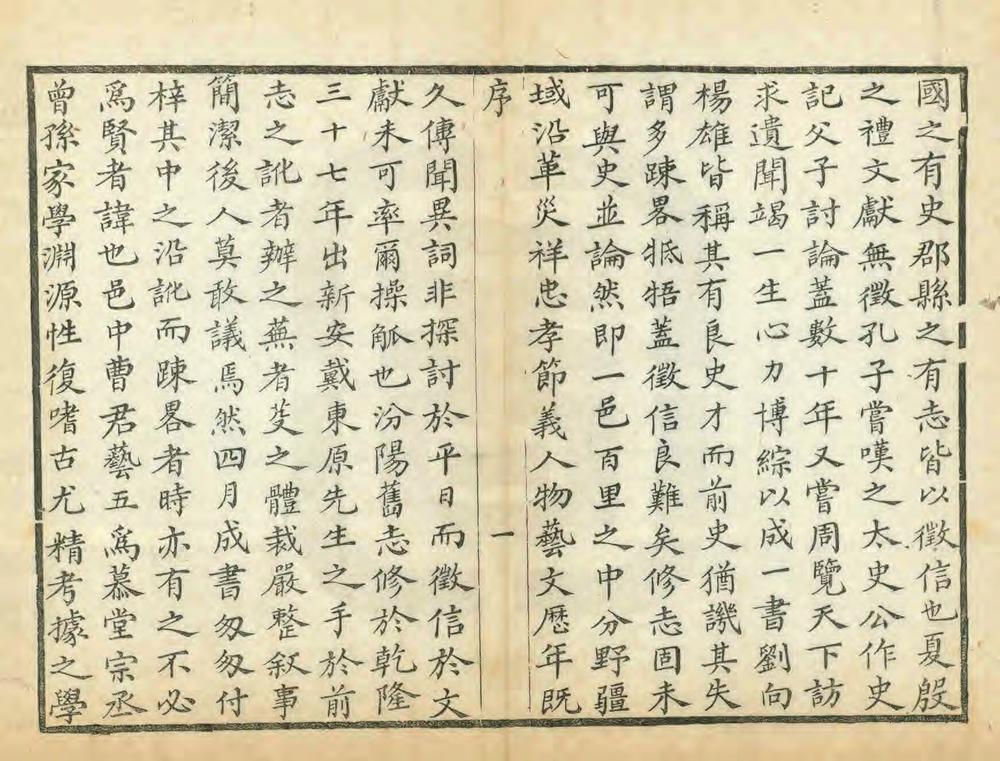 國之有史郡縣之有志皆以徵信也夏殷
之禮文獻無徵孔子嘗嘆之太史公作史
記父子討論蓋數十年又嘗周覽天下訪
求遺聞竭一生心力博綜以成一書劉向
楊雄皆稱其有良史才而前史猶譏其失
謂多踈畧牴牾蓋徵信良難矣修志固未
可與史並論然即一邑百里之中分野疆
域沿革災祥忠孝節義人物藝文歷年既
序 一
久傳聞異詞非探討於平日而徵信於文
獻未可率爾操觚也汾陽舊志修於乾隆
三十七年出新安戴東原先生之手於前
志之訛者辦之蕪者芟之體裁嚴整叙事
簡潔後人莫敢議焉然四月成書匆匆付
梓其中之沿訛而踈畧者時亦有之不必
爲賢者諱也邑中曹君藝五爲慕堂宗丞
曾孫家學淵源性復嗜古尤精考據之學